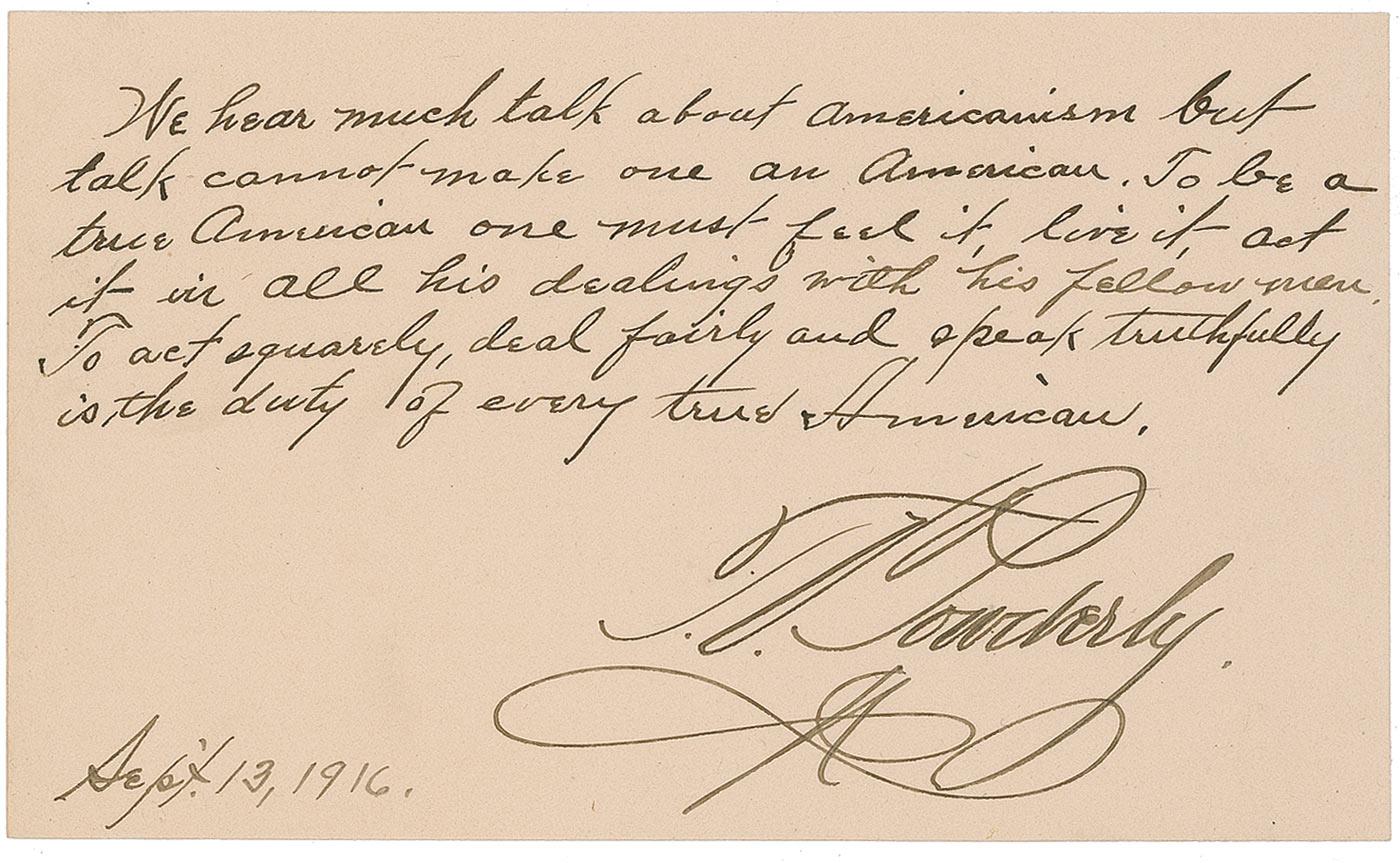 We hear much talk about Americanism but
talk cannot make one an American. To be a
true American one must feel it, live it, act
it in all his dealings with his fellow men.
To act squarely, deal fairly and speak truthfully
is the duty of every true American.
T.V. Powderly.
Sept. 13, 1916.